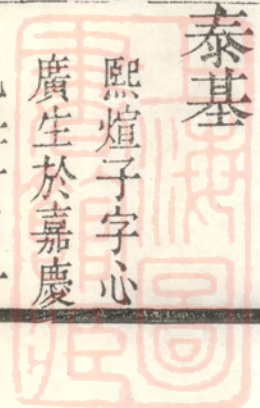 泰基
熙煊子字心
廣生於嘉慶